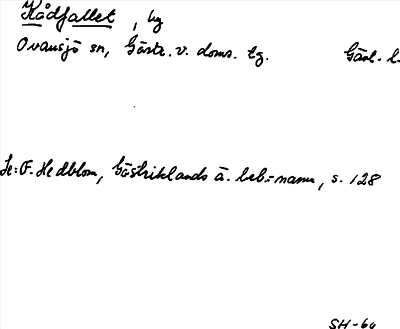 Rådfallet, by
Ovansjö sn, Gästr. v. doms. tg. Gävl. l.
Se: F. Hedblom, Gästriklands ä. beb.-namn, s. 128
SH-60